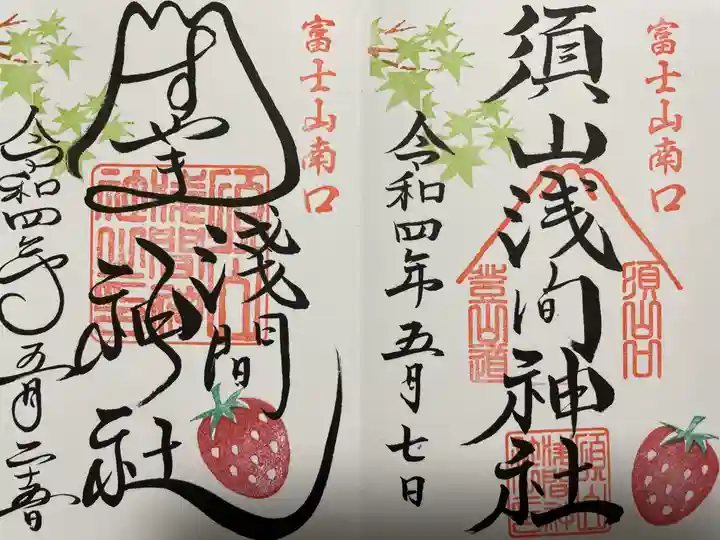 富士山南口
須山浅間神社
須山口
登山道
令和四年五月七日
富士山南口
すやま
浅間
神社
令和四年五月二十五日